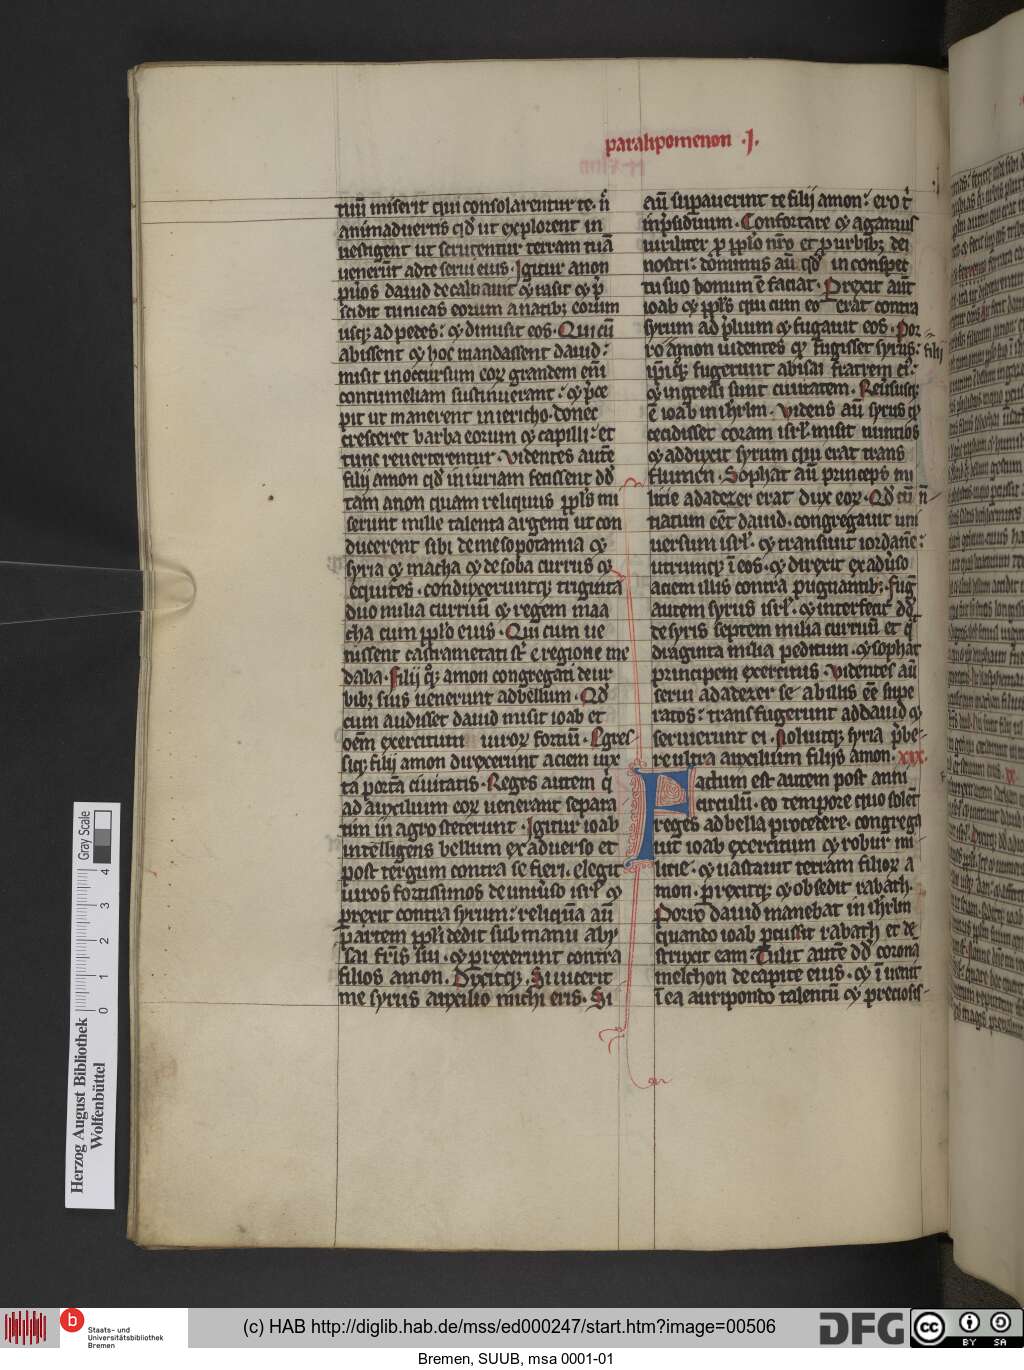 paralipomenon .I.
tuū miserit qui consolarentur te. n̄
animaduertis qd̛ ut explorent in
uestigent ut scrutentur terram tuā
uenerūt ad te serui eius. Igitur anon
pu̓os dauid decaluauit ⁊ rasit ⁊ p̄
scidit tunicas eorum a natibꝫ eorum
usqꝫ ad pedes: ⁊ dimisit eos. Qui cū
abissent ⁊ hoc mandassent dauid:
misit in occursum eoꝝ grandem eni̅
contumeliam sustinuerant: ⁊ p̄ce
pit ut manerent in iericho. donec
cresceret barba eorum ⁊ capilli: et
tunc reuerterentur. Videntes autē
filij amon qd̛ iniuriam fecissent dd̄
tam anon quam reliquus ppl̄s mi
serunt mille talenta argenti ut con
ducerent sibi de mesopotamia ⁊
syria ⁊ macha ⁊ de soba currus ⁊
equites. conduxeruntqꝫ triginta
duo milia curruū ⁊ regem maa
cha cum ppl̄o eius. Qui cum ue
nissent castrametati st̄ e regione me
daba. filij qꝫ amon congregati de ur
bibꝫ suis uenerunt ad bellum. Qd̛
cum audisset dauid misit ioab et
oēm exercitum uiroꝝ fortiū. Egres
siqꝫ filij amon direxerunt aciem iux
ta portā ciuitatis. Reges autem q̇
ad auxilium eoꝝ uenerant separa
tim in agro steterunt. Igitur ioab
intelligens bellum ex aduerso et
post tergum contra se fieri. elegit
uiros fortissimos de uniu̓so isrl̄ ⁊
perrexit contra syrum: reliquā aū
partem ppl̄i dedit sub manu aby
sai fr̄is sui. ⁊ perrexerunt contra
filios amon. Dixitqꝫ. Si uicerit
me syrus auxilio michi eris. Si
aū suꝑauerint te filij amon: ero t̓
in p̄sidium. Confortare ⁊ agamus
uiriliter ꝓ ppl̄o nr̄o et ꝓ urbibꝫ dei
nostri: dominus aū qd̛ in conspec
tu suo bonum ē faciat. Perrexit aūt
ioab ⁊ ppl̄s qui cum eo erat contra
syrum ad p̄lium ⁊ fugauit eos. Por
ro amon uidentes qd̛ fugisset syrus: filij
ip̄iqꝫ fugerunt abisai fratrem ei̓:
⁊ ingressi sunt ciuitatem. Reūsusqꝫ
ē ioab in ihrl̄m. Videns aū syrus qd̛
cecidisset coram isrl̄. misit nuncios
⁊ adduxit syrum qui erat trans
flumen. Sophat aū princeps mi
licie adadezer erat dux eoꝝ. Qd̛ cū n̄
tiatum eēt dauid. congregauit uni
uersum isrl̄. ⁊ transiuit iordanē:
irruitqꝫ ī eos. ⁊ direxit ex adu̓so
aciem illis contra pugnantibꝫ. fug̅
autem syrus isrl̄. ⁊ interfecit dd̄
de syris septem milia curruū et q̓
draginta milia peditum. ⁊ sophat
principem exercitus. Videntes aū
serui adadezer se ab isrl̄is eē supe
ratos: transfugerunt ad dauid ⁊
seruierunt ei. Noluitqꝫ syria p̄be
re ultra auxilium filijs amon. XIX.
Factum est autem post anni
circulū. eo tempore quo solēt
reges ad bella procedere. congrega
uit ioab exercitum ⁊ robur mi
licie. ⁊ uastauit terram filioꝝ a
mon. perrexitqꝫ ⁊ obsedit rabath.
Porro dauid manebat in ihrl̄m
quando ioab ꝑcussit rabath et de
struxit eam. Tulit autē dd̄ coronā
melchon de capite eius. ⁊ ī uenit
ī ea auri pondo talentū ⁊ preciosis
Gray Scale
0 1 2 3 4
Herzog August Bibliothek
Wolfenbüttel
b
Staats- und
Universitätsbibliothek
Bremen
(c) HAB http://diglib.hab.de/mss/ed000247/start.htm?image=00506
DFG
cc BY SA
Bremen, SUUB, msa 0001-01